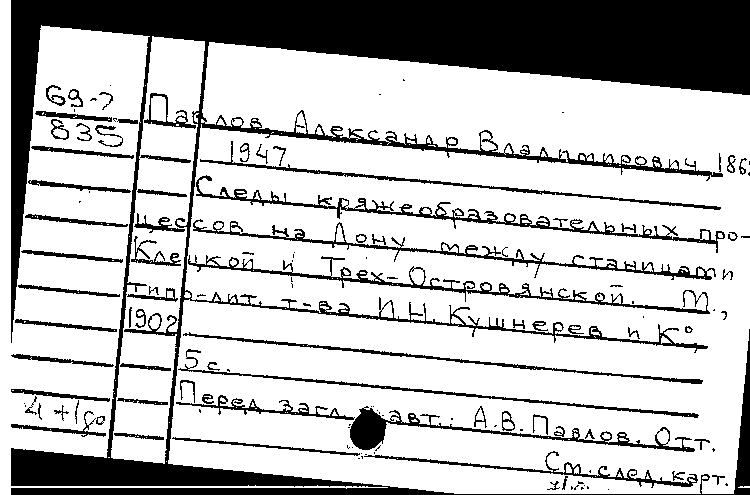 69-7
835
Павлов, Александр Владимирович, 186
1947.
Следы кряжеобразовательных про-
цессов на Дону между станицами
Клецкой и Трех-Островянской. М.,
типо-лит. т-ва И.Н. Кушнерев и К°,
1902
5 с.
Перед загл. авт.: А.В. Павлов. Отт.
См. след. карт.